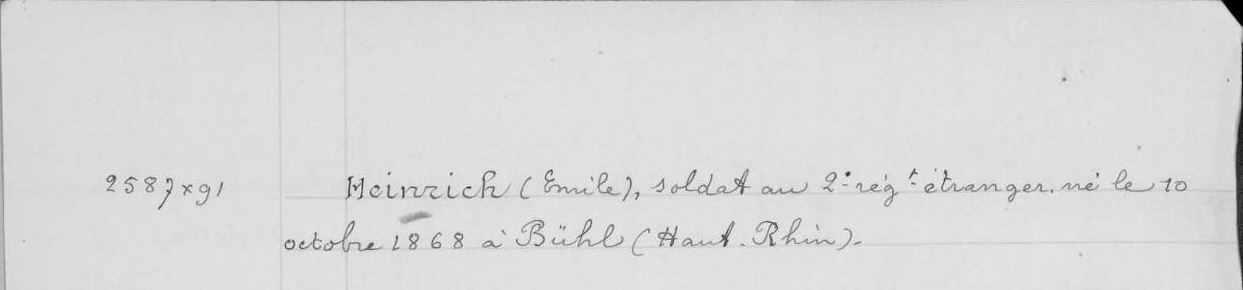 2587x91 Heinrich (Emile), soldat au 2e régt étranger, né le 10
octobre 1868 à Bühl (Haut-Rhin).